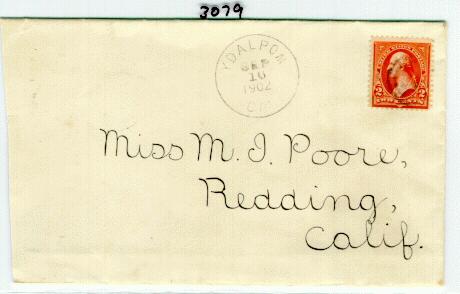 3079
YDALPOM
SEP
16
1902
CAL.
2 2
Miss M. I. Poore,
Redding,
Calif.